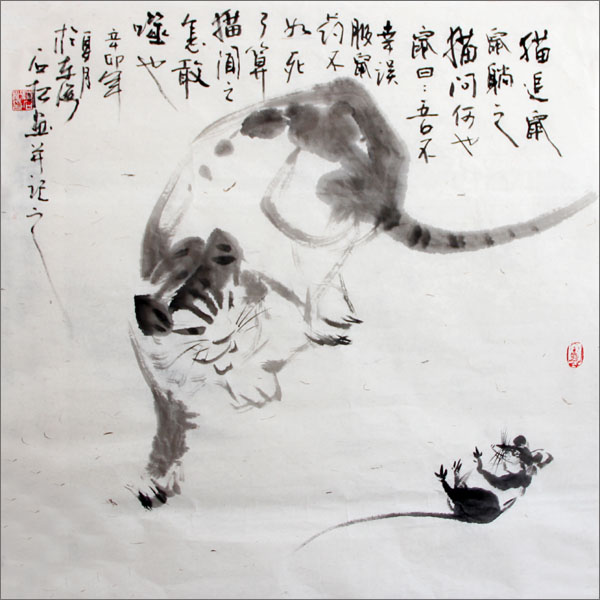 猫追鼠
鼠躺之
猫问何也
鼠曰：吾不
幸误
服鼠
药不
如死
了算
猫闻之
怎敢
噬也
辛卯年
夏月
于东海
石江画并记之